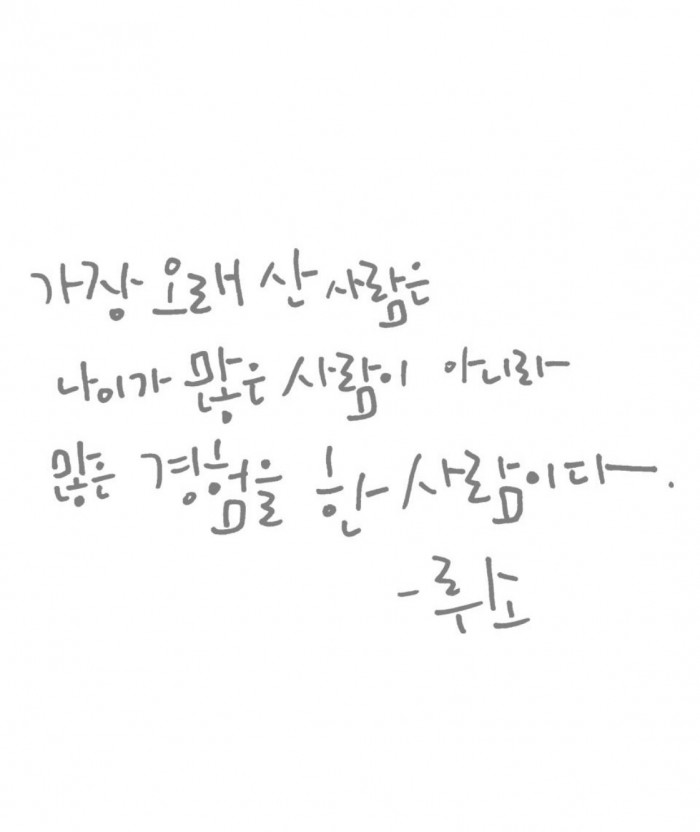 가장 오래 산 사람은
나이가 많은 사람이 아니라
많은 경험을 한 사람이다.
- 루소